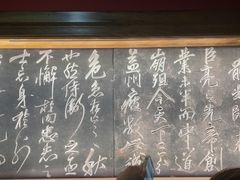 前出師表
臣亮言先帝創
業未半而中道
崩殂今天下三
益州疲敝此誠
危急存亡之秋
也然侍衛之臣
不懈於內忠志之
士忘身於外